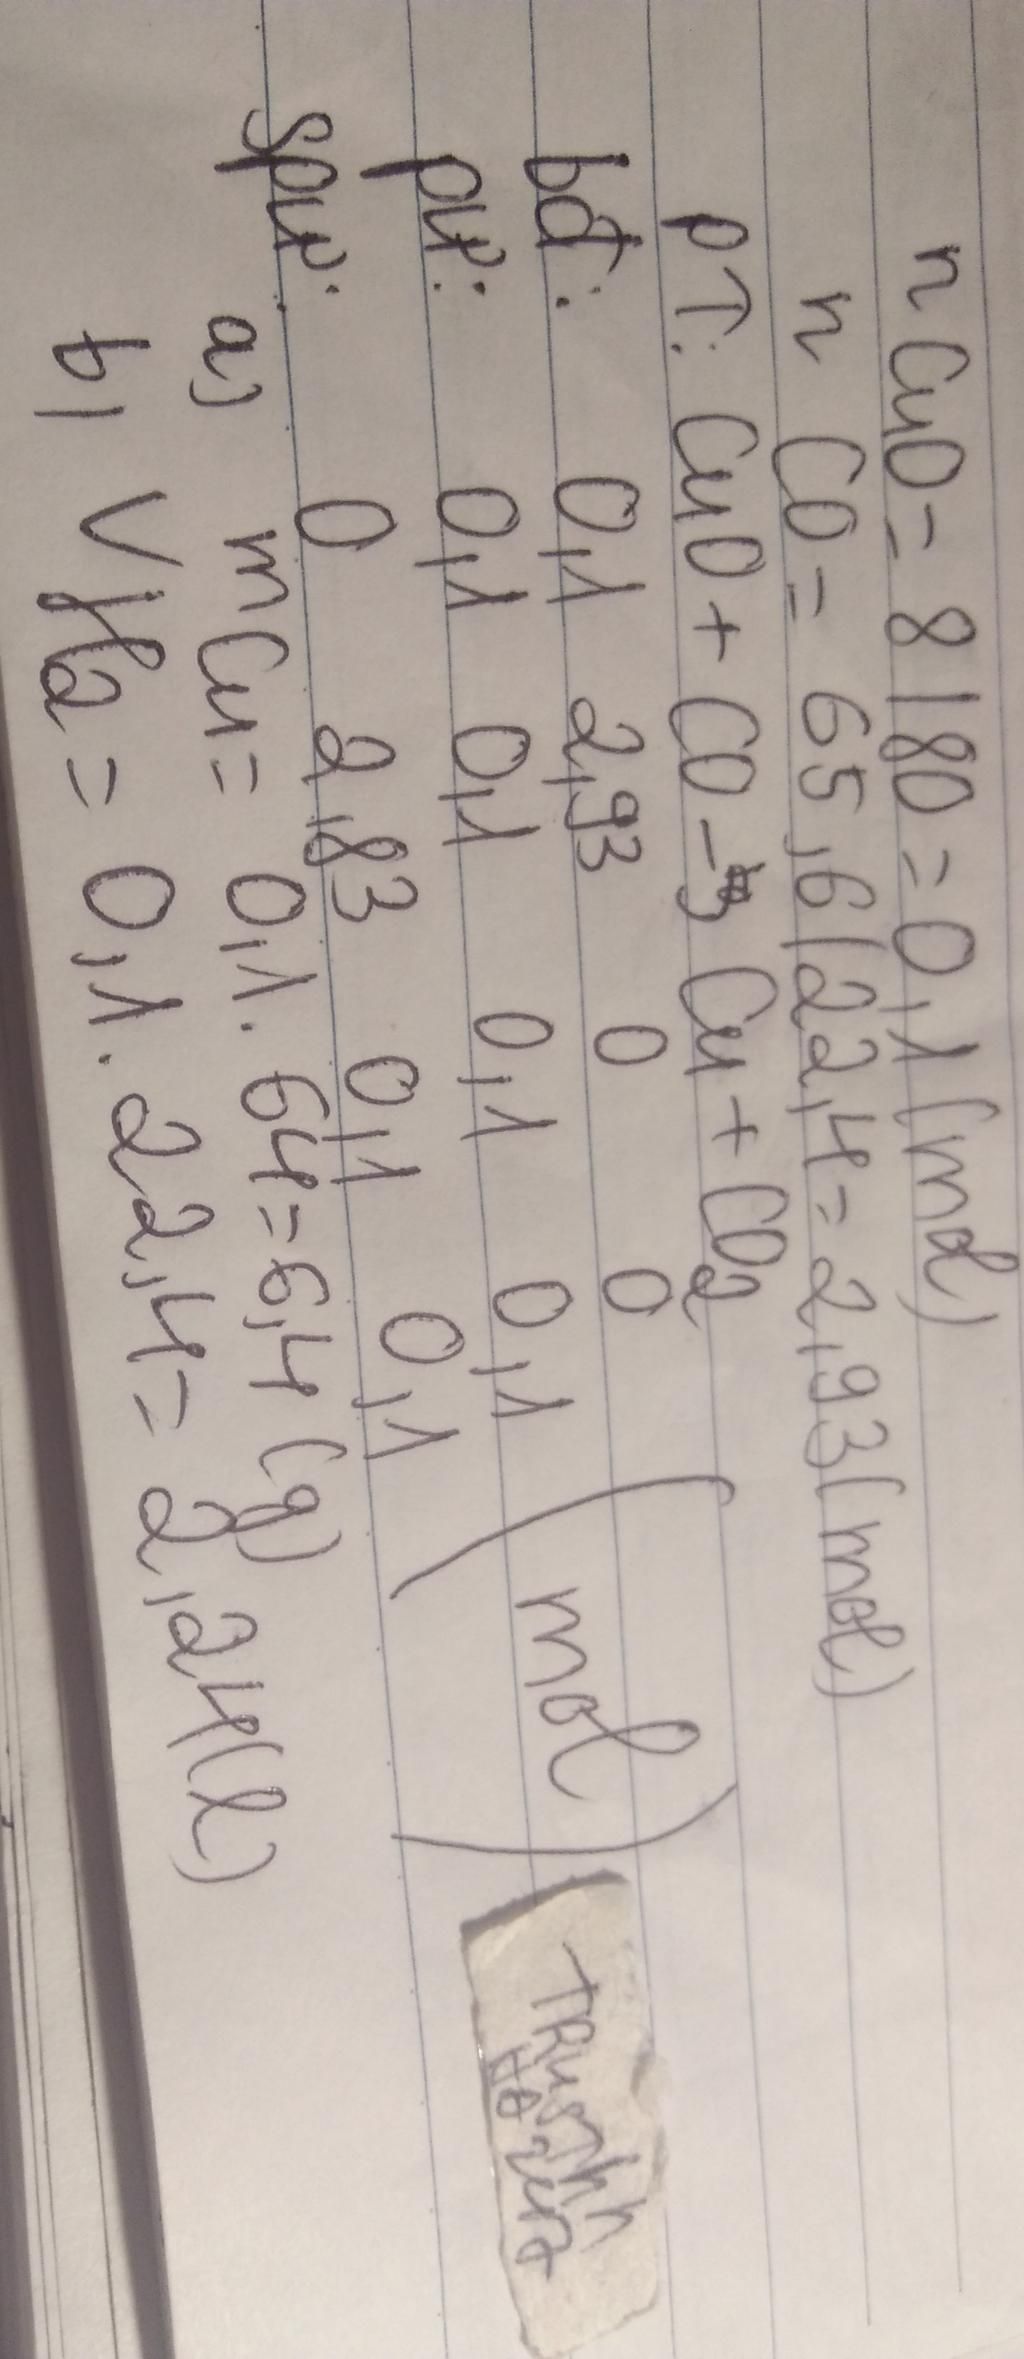 nCuO = 8/80 = 0,1 (mol)
n CO = 65,6/22,4 = 2,93 (mol)
PT: CuO + CO → Cu + CO2
bđ: 0,1 2,93 0 0
pư: 0,1 0,1 0,1 0,1 (mol)
spư: 0 2,83 0,1 0,1
a) mCu = 0,1 . 64 = 6,4 (g)
b) VH2 = 0,1 . 22,4 = 2,24 (l)